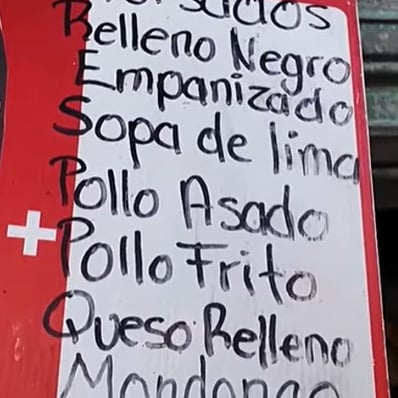 Relleno Negro
Empanizado
Sopa de lima
Pollo Asado
Pollo Frito
Queso Relleno
Mondongo